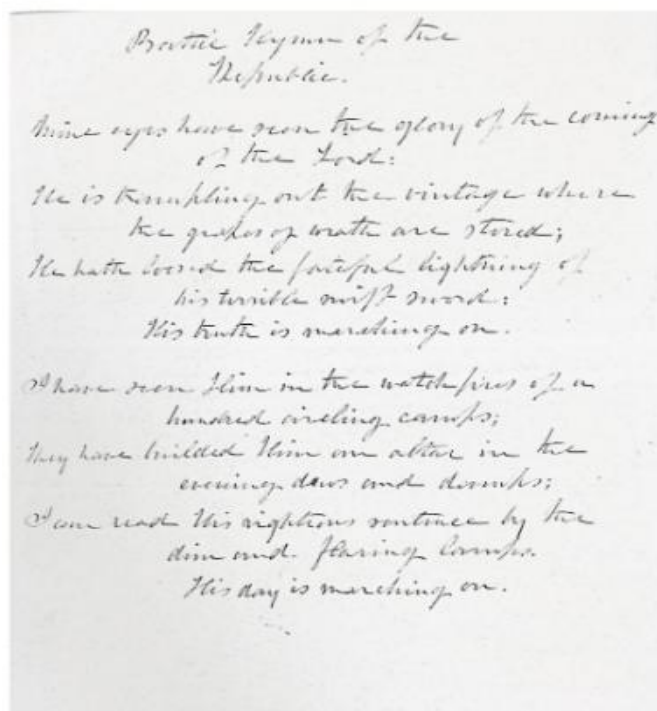 Battle Hymn of the
Republic.
Mine eyes have seen the glory of the coming
of the Lord:
He is trampling out the vintage where
the grapes of wrath are stored;
He hath loosed the fateful lightning of
his terrible swift sword:
His truth is marching on.
I have seen Him in the watchfires of a
hundred circling camps;
They have builded Him an altar in the
evening dews and damps;
I can read His righteous sentence by the
dim and flaring lamps.
His day is marching on.